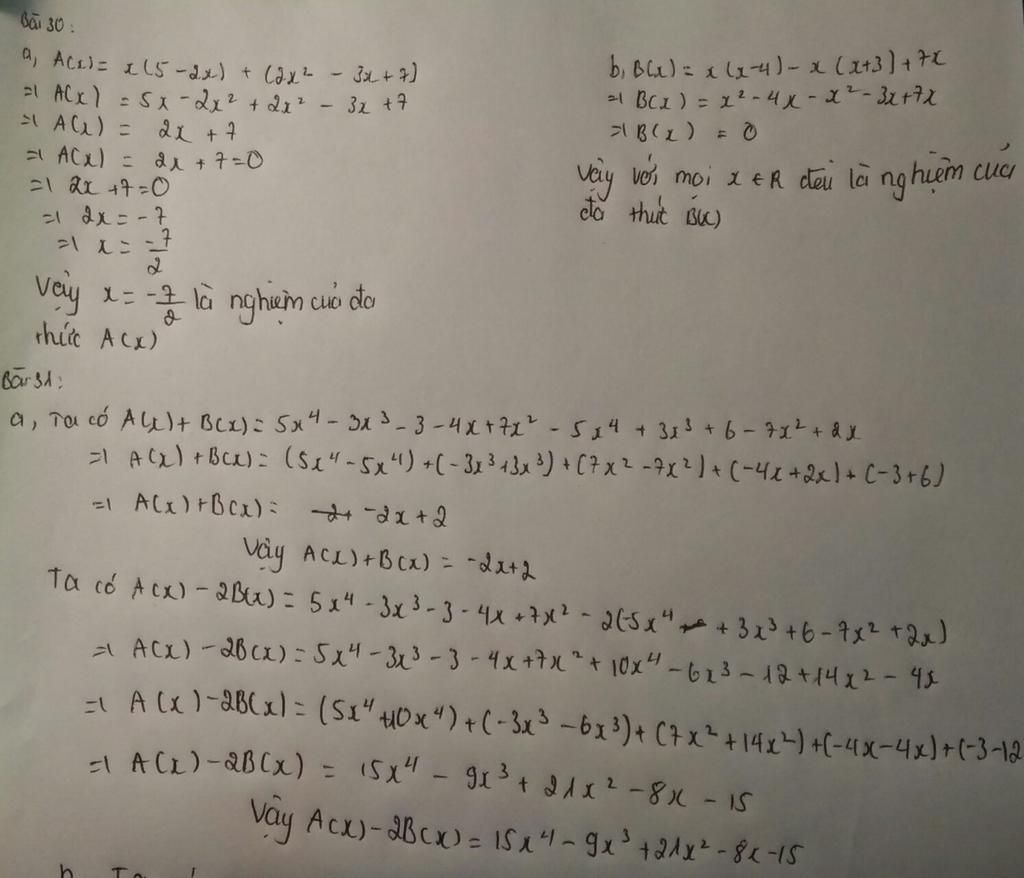 Bài 30:
a, A(x) = x(5 - 2x) + (2x² - 3x + 7)
=> A(x) = 5x - 2x² + 2x² - 3x + 7
=> A(x) = 2x + 7
=> A(x) = 2x + 7 = 0
=> 2x + 7 = 0
=> 2x = -7
=> x = -7/2
Vậy x = -7/2 là nghiệm của đa
thức A(x)
b, B(x) = x(x-4) - x(x+3) + 7x
=> B(x) = x² - 4x - x² - 3x + 7x
=> B(x) = 0
Vậy với mọi x ∈ R đều là nghiệm của
đa thức B(x)
Bài 31:
a, Ta có A(x) + B(x) = 5x⁴ - 3x³ - 3 - 4x + 7x² - 5x⁴ + 3x³ + 6 - 7x² + 2x
=> A(x) + B(x) = (5x⁴ - 5x⁴) + (-3x³ + 3x³) + (7x² - 7x²) + (-4x + 2x) + (-3 + 6)
=> A(x) + B(x) = -2x + 2
Vậy A(x) + B(x) = -2x + 2
Ta có A(x) - 2B(x) = 5x⁴ - 3x³ - 3 - 4x + 7x² - 2(-5x⁴ + 3x³ + 6 - 7x² + 2x)
=> A(x) - 2B(x) = 5x⁴ - 3x³ - 3 - 4x + 7x² + 10x⁴ - 6x³ - 12 + 14x² - 4x
=> A(x) - 2B(x) = (5x⁴ + 10x⁴) + (-3x³ - 6x³) + (7x² + 14x²) + (-4x - 4x) + (-3 - 12
=> A(x) - 2B(x) = 15x⁴ - 9x³ + 21x² - 8x - 15
Vậy A(x) - 2B(x) = 15x⁴ - 9x³ + 21x² - 8x - 15